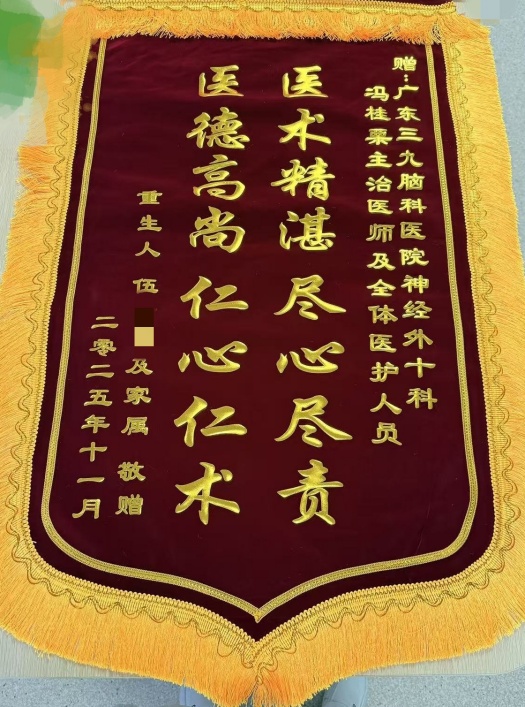 赠：广东三九脑科医院神经外十科
冯桂栗主治医师及全体医护人员
医术精湛 尽心尽责
医德高尚 仁心仁术
重生人 伍 及家属 敬赠
二零二五年十一月